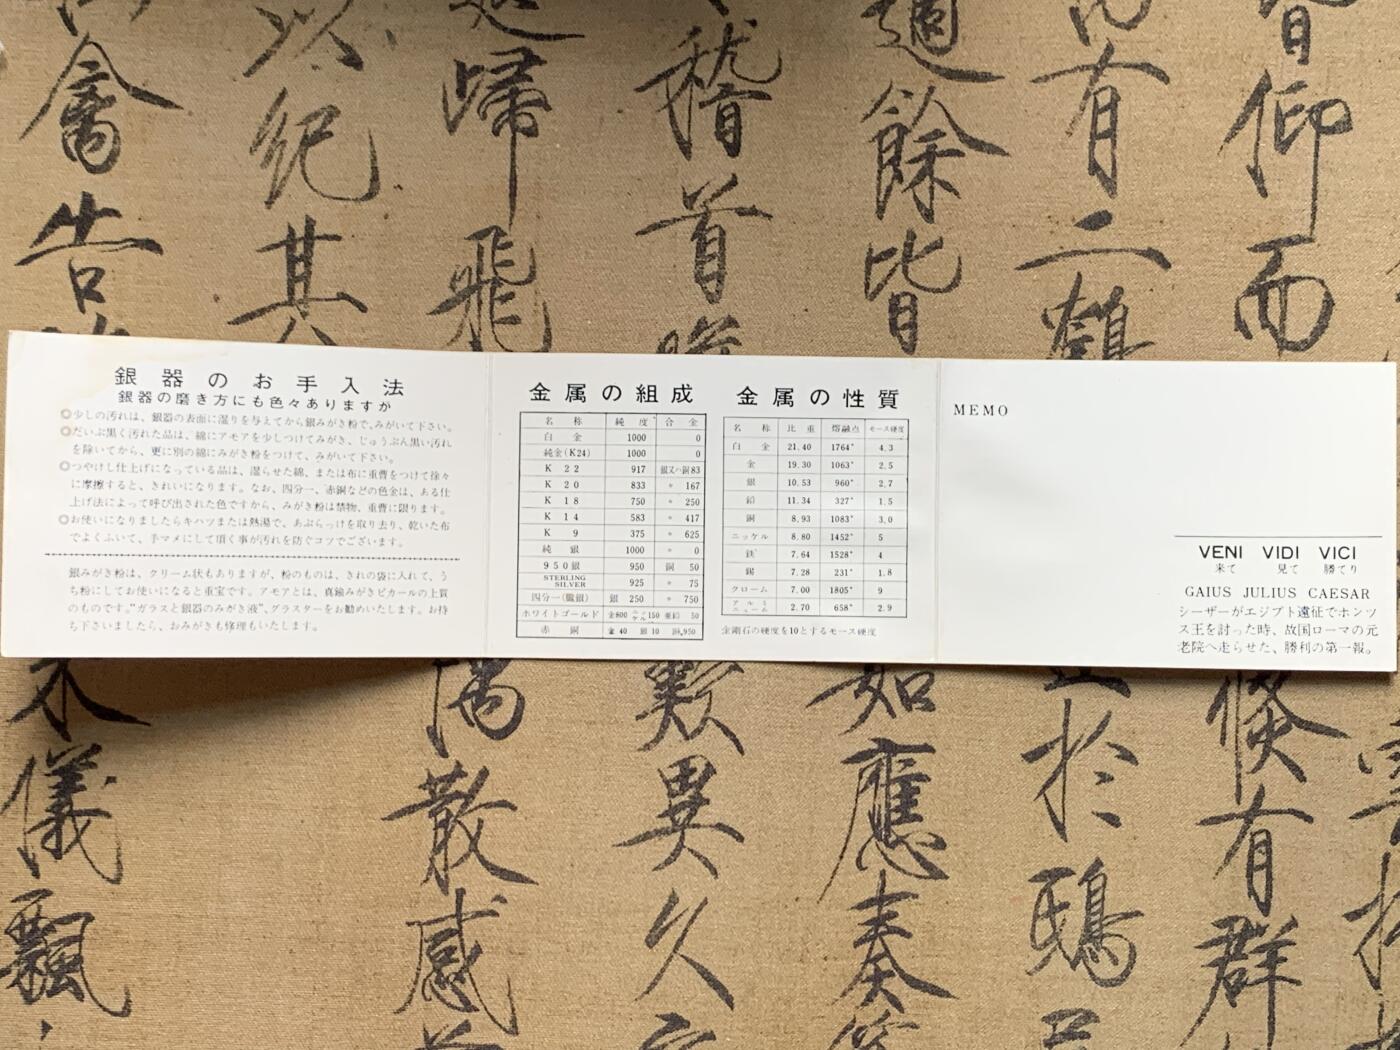 銀器のお手入法
銀器の磨き方にも色々ありますが
◎少しの汚れは、銀器の表面に湿りを与えてから銀みがき粉で、みがいて下さい。
◎だいぶ黒く汚れた品は、綿にアモアを少しつけてみがき、じゅうぶん黒い汚れ
を除いてから、更に別の綿にみがき粉をつけて、みがいて下さい。
◎つやけし仕上げになっている品は、湿らせた綿、または布に重曹をつけて徐々
に摩擦すると、きれいになります。なお、四分一、赤銅などの色金は、ある仕
上げ法によって呼び出された色ですから、みがき粉は禁物、重曹に限ります。
◎お使いになりましたらキハツまたは熱湯で、あぶらっけを取り去り、乾いた布
でよくふいて、手マメにして頂く事が汚れを防ぐコツでございます。
銀みがき粉は、クリーム状もありますが、粉のものは、きれの袋に入れて、う
ち粉にしてお使いになると重宝です。アモアとは、真鍮みがきピカールの上質
のものです。"ガラスと銀器のみがき液"、グラスターをお勧めいたします。お持
ち下さいましたら、おみがきも修理もいたします。
金属の組成
名称 純度 合金
白金 1000 0
純金(K24) 1000 0
K22 917 銀又ハ銅83
K20 833 〃 167
K18 750 〃 250
K14 583 〃 417
K9 375 〃 625
純銀 1000 〃 0
950銀 950 銅 50
STERLING SILVER 925 〃 75
四分一(朧銀) 銀 250 〃 750
ホワイトゴールド 金800 ニッケル150 亜鉛 50
赤銅 金 40 銀 10 銅,950
金属の性質
名称 比重 熔融点 モース硬度
白金 21.40 1764° 4.3
金 19.30 1063° 2.5
銀 10.53 960° 2.7
鉛 11.34 327° 1.5
銅 8.93 1083° 3.0
ニッケル 8.80 1452° 5
鉄 7.64 1528° 4
錫 7.28 231° 1.8
クローム 7.00 1805° 9
アルミニューム 2.70 658° 2.9
金剛石の硬度を10とするモース硬度
MEMO
VENI VIDI VICI
来て 見て 勝てり
GAIUS JULIUS CAESAR
シーザーがエジプト遠征でホンツ
ス王を討った時、故国ローマの元
老院へ走らせた、勝利の第一報。
皆仰而
有二鶴
適餘皆
稽首
歸飛
以紀其
禽告
倏有群
於鴟
如應奏
歎異久
散感
儀飄